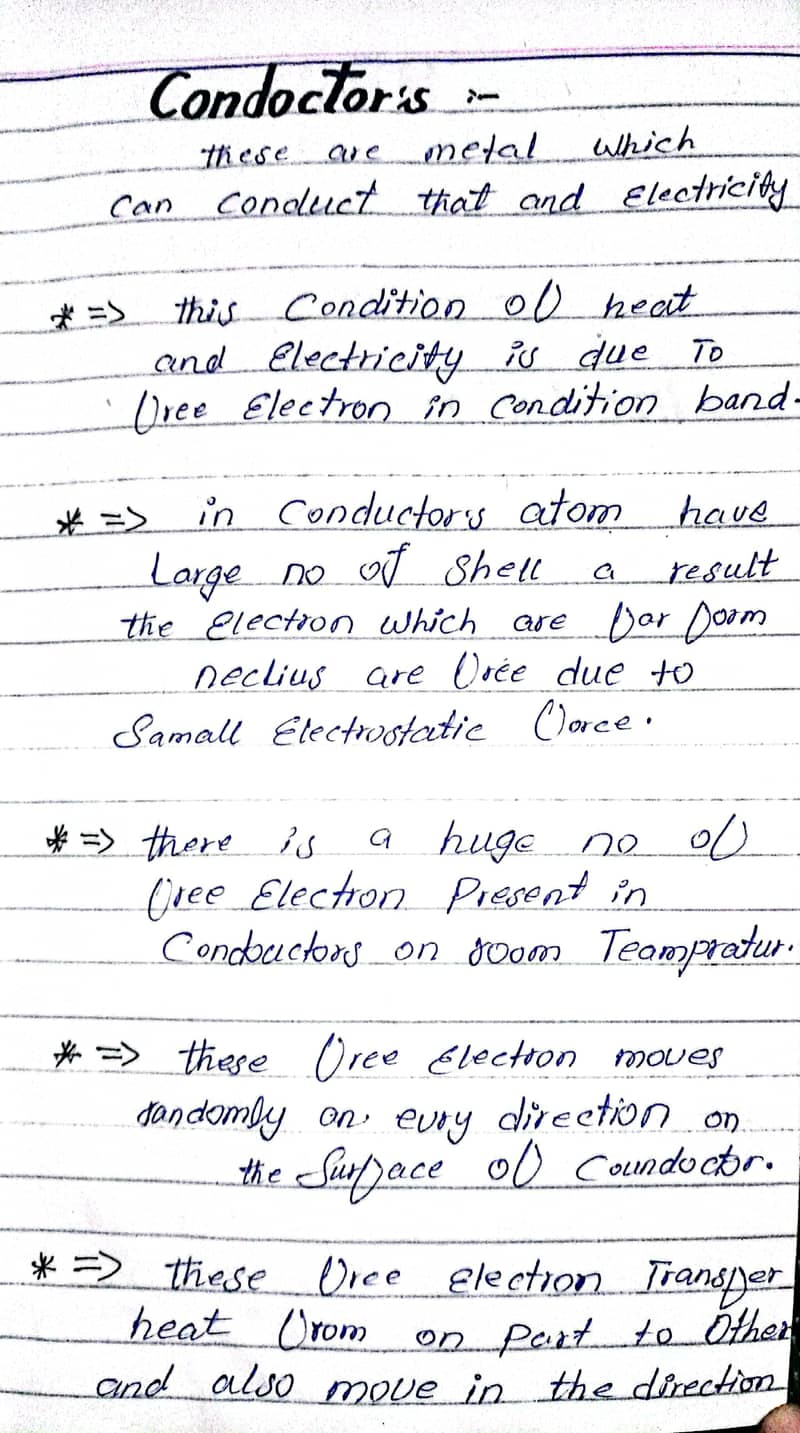 Condoctor's :-
these are metal which
can conduct that and Electricity
* => this Condition of heat
and Electricity is due To
free Electron in Condition band.
* => in Conductor's atom have
Large no of Shell a result
the Electron which are far form
neclius are free due to
Samall Electrostatic force.
* => there is a huge no of
free Electron Present in
Conductors on room Teampratur.
* => these free Electron moves
randomly on evry direction on
the Surface of Coundoctor.
* => these free Electron Transfer
heat from on part to Other
and also move in the direction